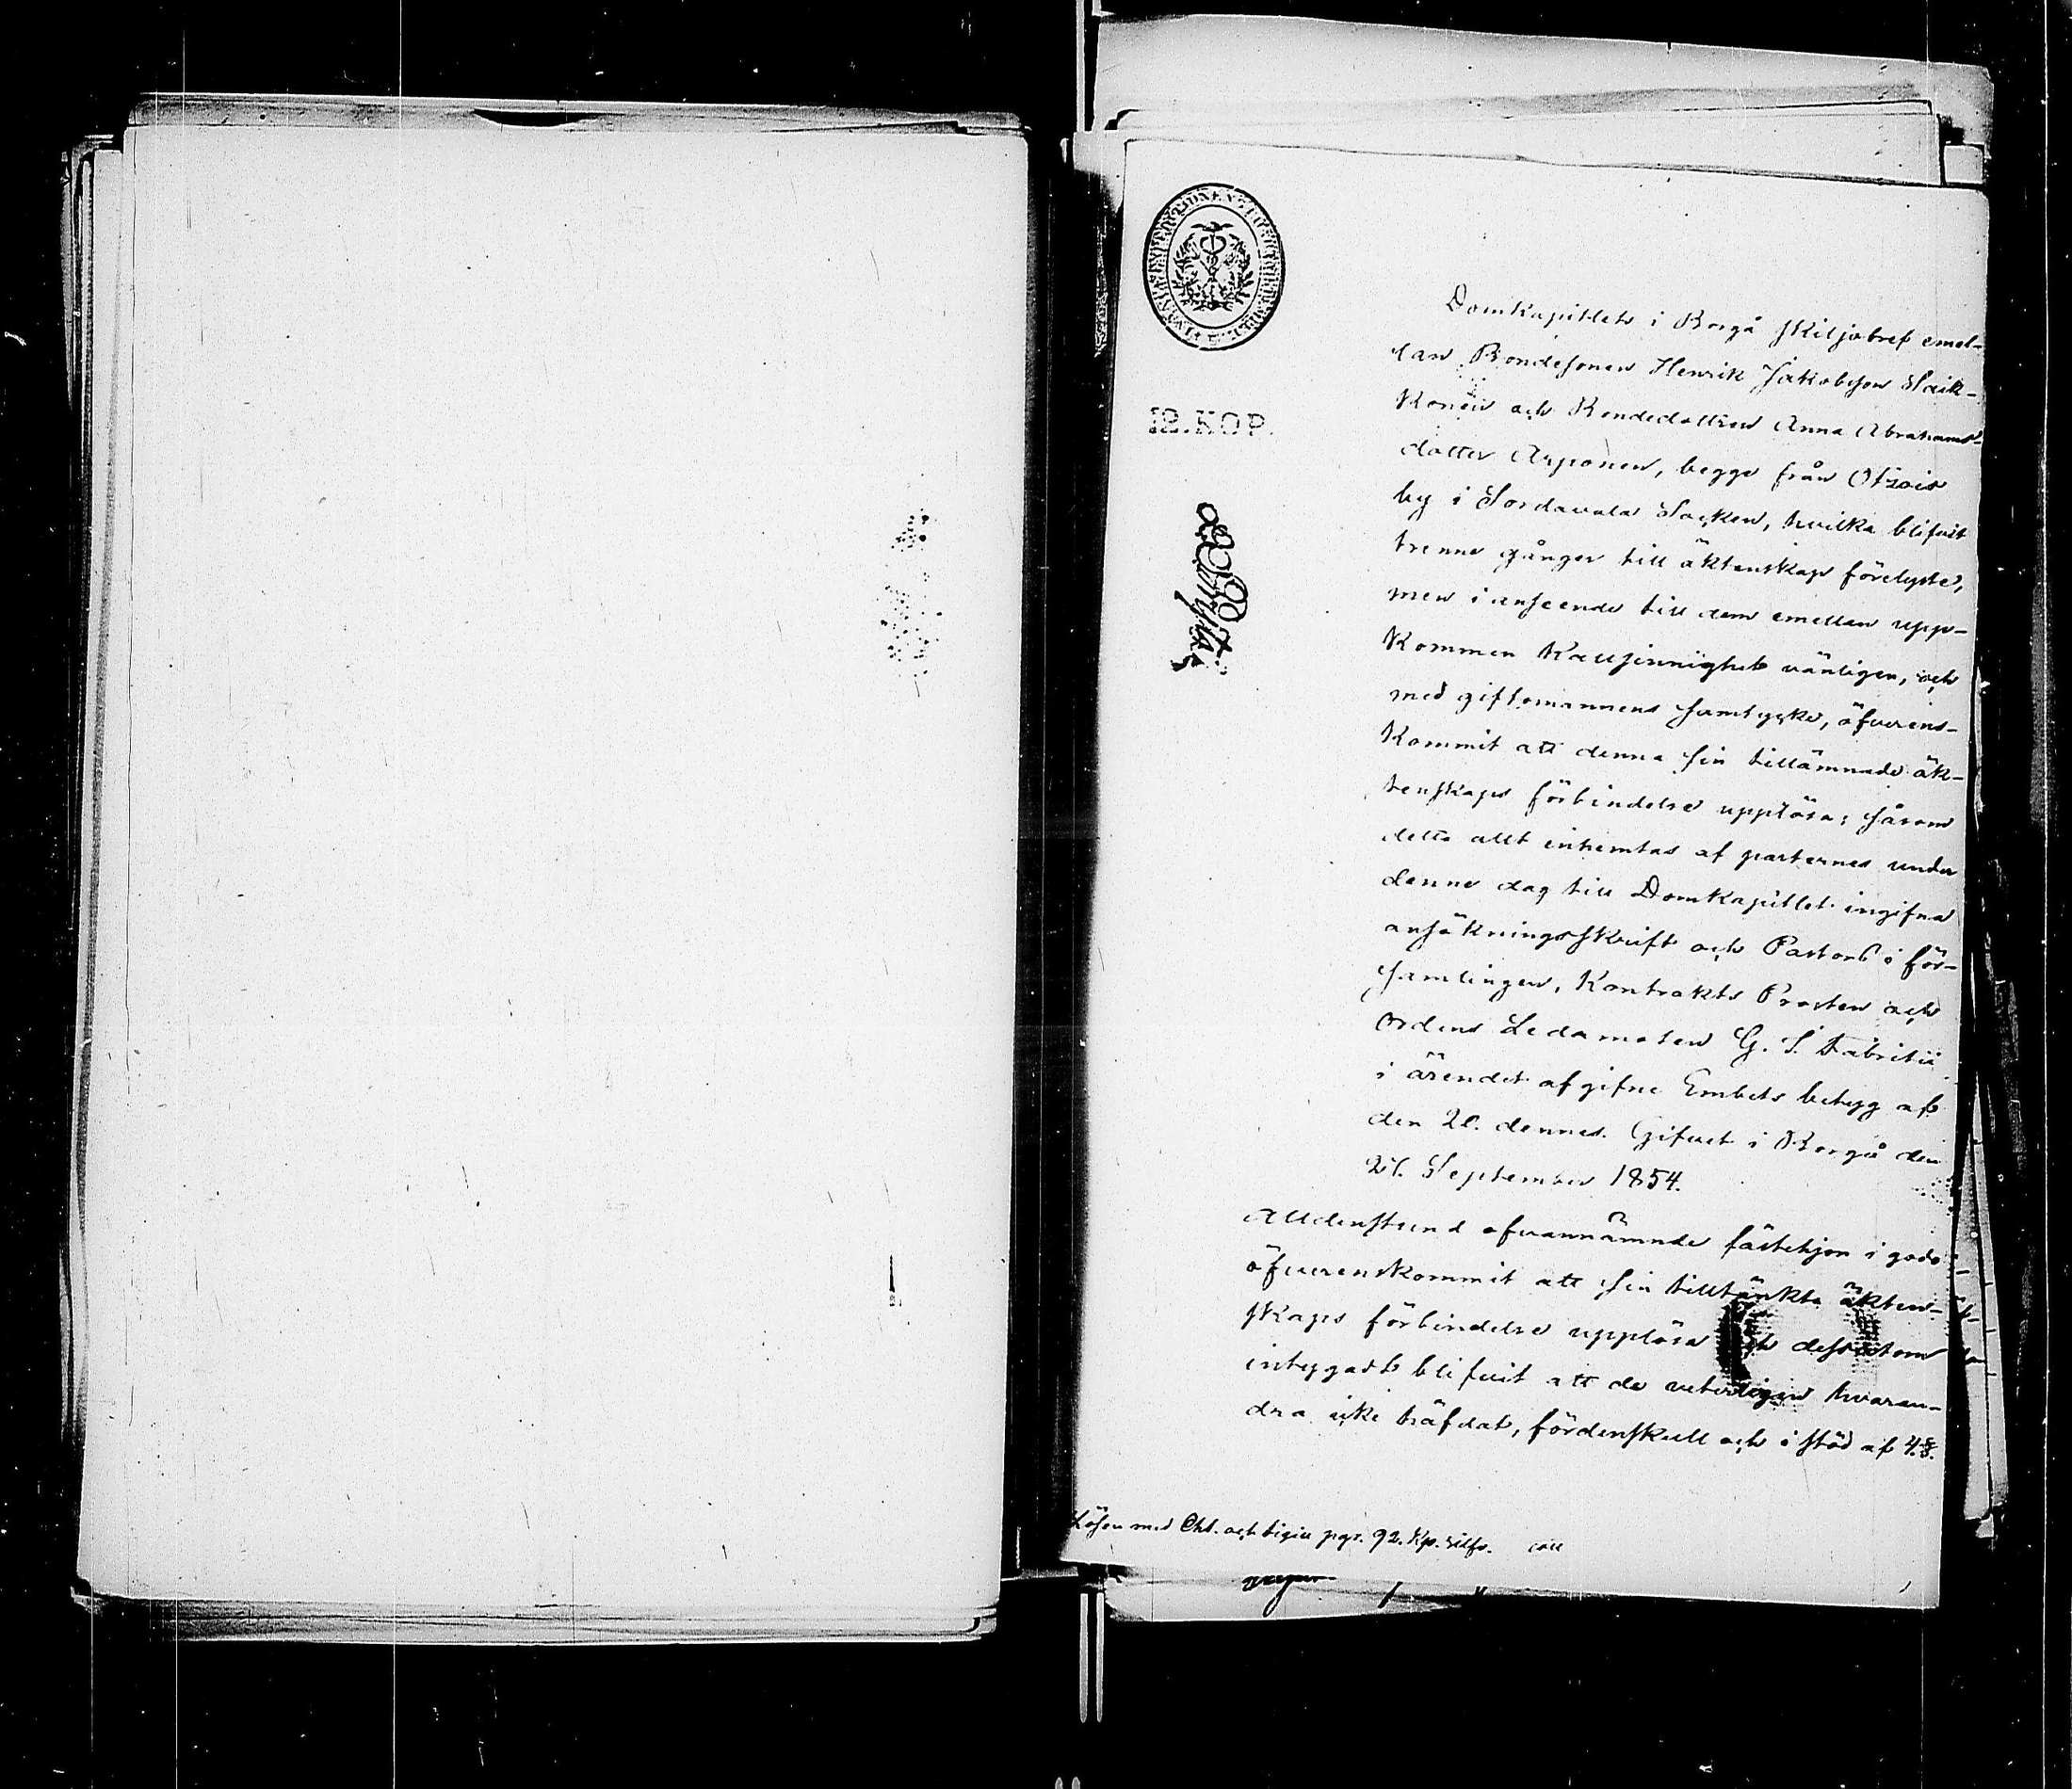 12. KOP.
Domkapitlets i Borgå skiljobref emel-
lan Bondesonen Henrik Jakobsson Paik-
konen och Bondedottren Anna Abrahams-
dotter Arponen, begge från Otsois
by i Sordavala Socken, hvilka blifvit
trenne gånger till äktenskap förelyste,
men i anseende till dem emellan upp-
kommen kallsinnighet vänligen, och
med giftomannens samtycke, öfverens-
kommit att denna sin tillämnade äk-
tenskaps förbindelse upplösa; såsom
detta allt inhemtas af parternes under
denne dag till Domkapitlet ingifna
ansökningsskrift och Pastors i för-
samlingen, Kontrakts Prosten och
Ordens Ledamoten G. S. Fabritii
i ärendet afgifne Embets betyg af
den 20. dennes. Gifvet i Borgå den
27. September 1854.
Alldenstund ofvannämnde fästehjon i godo
öfverenskommit att sin tilltänkta äkten-
skaps förbindelse upplösa och dessutom
intygadt blifvit att de veterligen hvaran-
dra icke häfdat, fördenskull och i stöd af 4. §.
Lösen med Cht. och 92. Kp. Silfv.